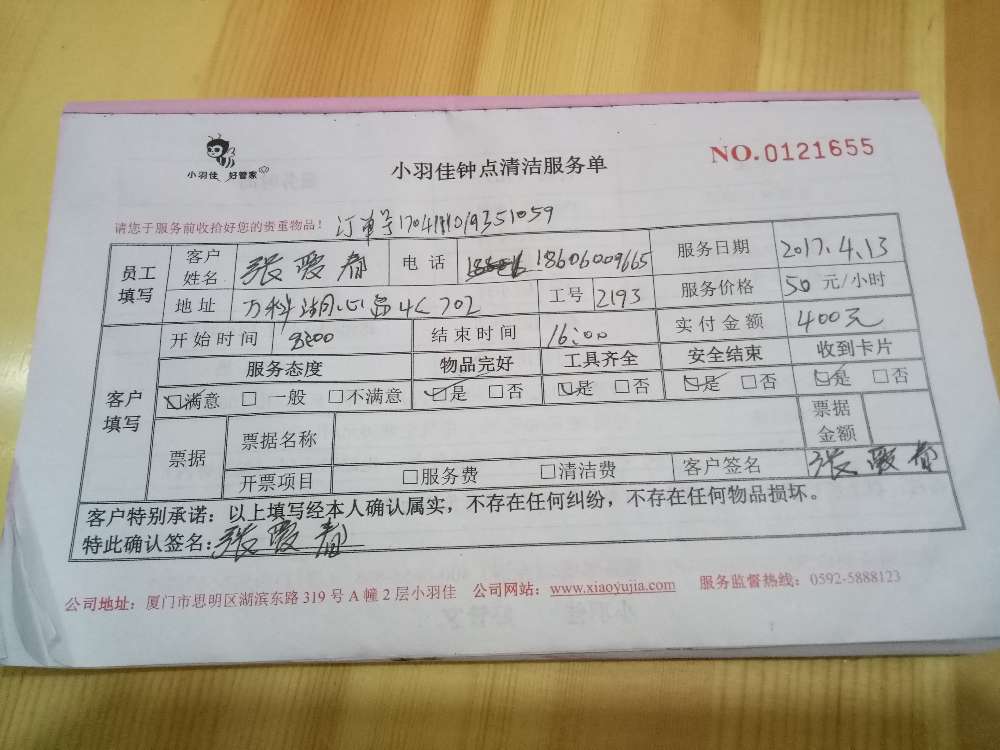 小羽佳 好管家
小羽佳钟点清洁服务单
NO.0121655
请您于服务前收拾好您的贵重物品！
员工填写 客户姓名 张爱春 电话 18606009665 服务日期 2017.4.13
地址 万科湖心岛4C702 工号 2193 服务价格 50元/小时
客户填写 开始时间 8:00 结束时间 16:00 实付金额 400元
服务态度 物品完好 工具齐全 安全结束 收到卡片
☑满意 □一般 □不满意 ☑是 □否 ☑是 □否 ☑是 □否 ☑是 □否
票据 票据名称 票据金额
开票项目 □服务费 □清洁费 客户签名 张爱春
客户特别承诺：以上填写经本人确认属实，不存在任何纠纷，不存在任何物品损坏。
特此确认签名：张爱春
公司地址：厦门市思明区湖滨东路319号A幢2层小羽佳 公司网站：www.xiaoyujia.com 服务监督热线：0592-5888123